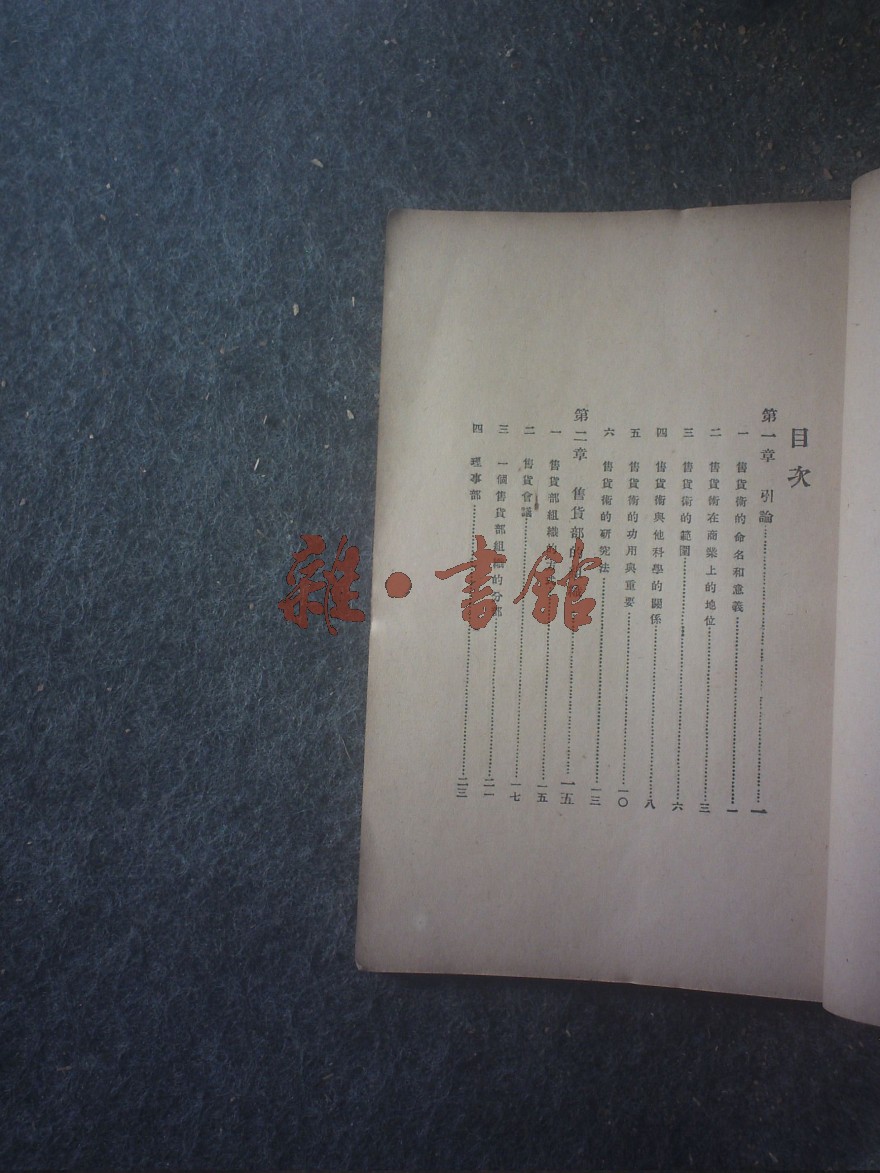 目次
第一章 引論 一
一 售貨術的命名和意義 一
二 售貨術在商業上的地位 三
三 售貨術的範圍 六
四 售貨術與他科學的關係 八
五 售貨術的功用與重要 一〇
六 售貨術的研究法 一三
第二章 售貨部的 一五
一 售貨部組織 一五
二 售貨會議 一七
三 一個售貨部組織的分部 二一
四 理事部 二三
雜·書館